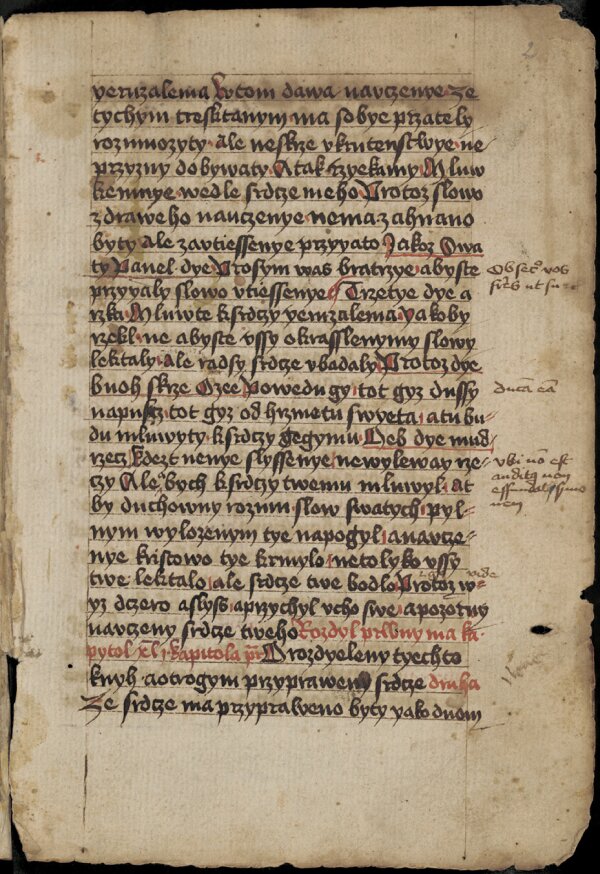 2
yeruzalema kytom dawa nauczenye ze
tychym tresktanym ma sobye przately
rozmnozyty ale neskrze vkrutenstwye ne
przyzny dobywaty A tak rzyekamy Mluw
kemnye wedle srdcze meho Protoz slowo
zdraweho nauczenye nema zahnano
byty Ale zautiessenye przyyato Jakoz Swa
ty Pawel dye Prosym was bratrzye abyste
przyyaly slowo vtiessenye Trzetye dye a
rzka Mluwte ksrdczy yeruzalema yakoby
rzekl ne abyste vssy okrasslenymy slowy
lektaly ale radsy srdcze vbadaly Protoz dye
buoh skrze Ozee Powedu gy tot gyz dussy
napusz tot gyz od hrzmotu swyeta a tu bu
du mluwyty ksrdczy gegymu Neb dye mud
rzecz kdezt nenye slyssenye newyleway rze
czy Ale bych ksrdczy twemu mluwyl at
by duchowny rozum slow swatych pyl
nym wylozenym tye napogyl a naucze
nye kristowo tye krmylo netolyko vssy
twe lektalo ale srdcze twe bodlo Protoz w
yz dczero a slyss a przychyl vcho swe a pozorny
nauczeny srdcze tweho Rozdyl prwny ma ka
pytol xli kapitola prï O rozdyeleny tyechto
knyh a o trogym przyprawenï srdcze druha
Ze srdcze ma przypraweno byty yako duom
Obsecro vos
fres ut su
ducã eã
vbi nõ est
auditus non
effundas